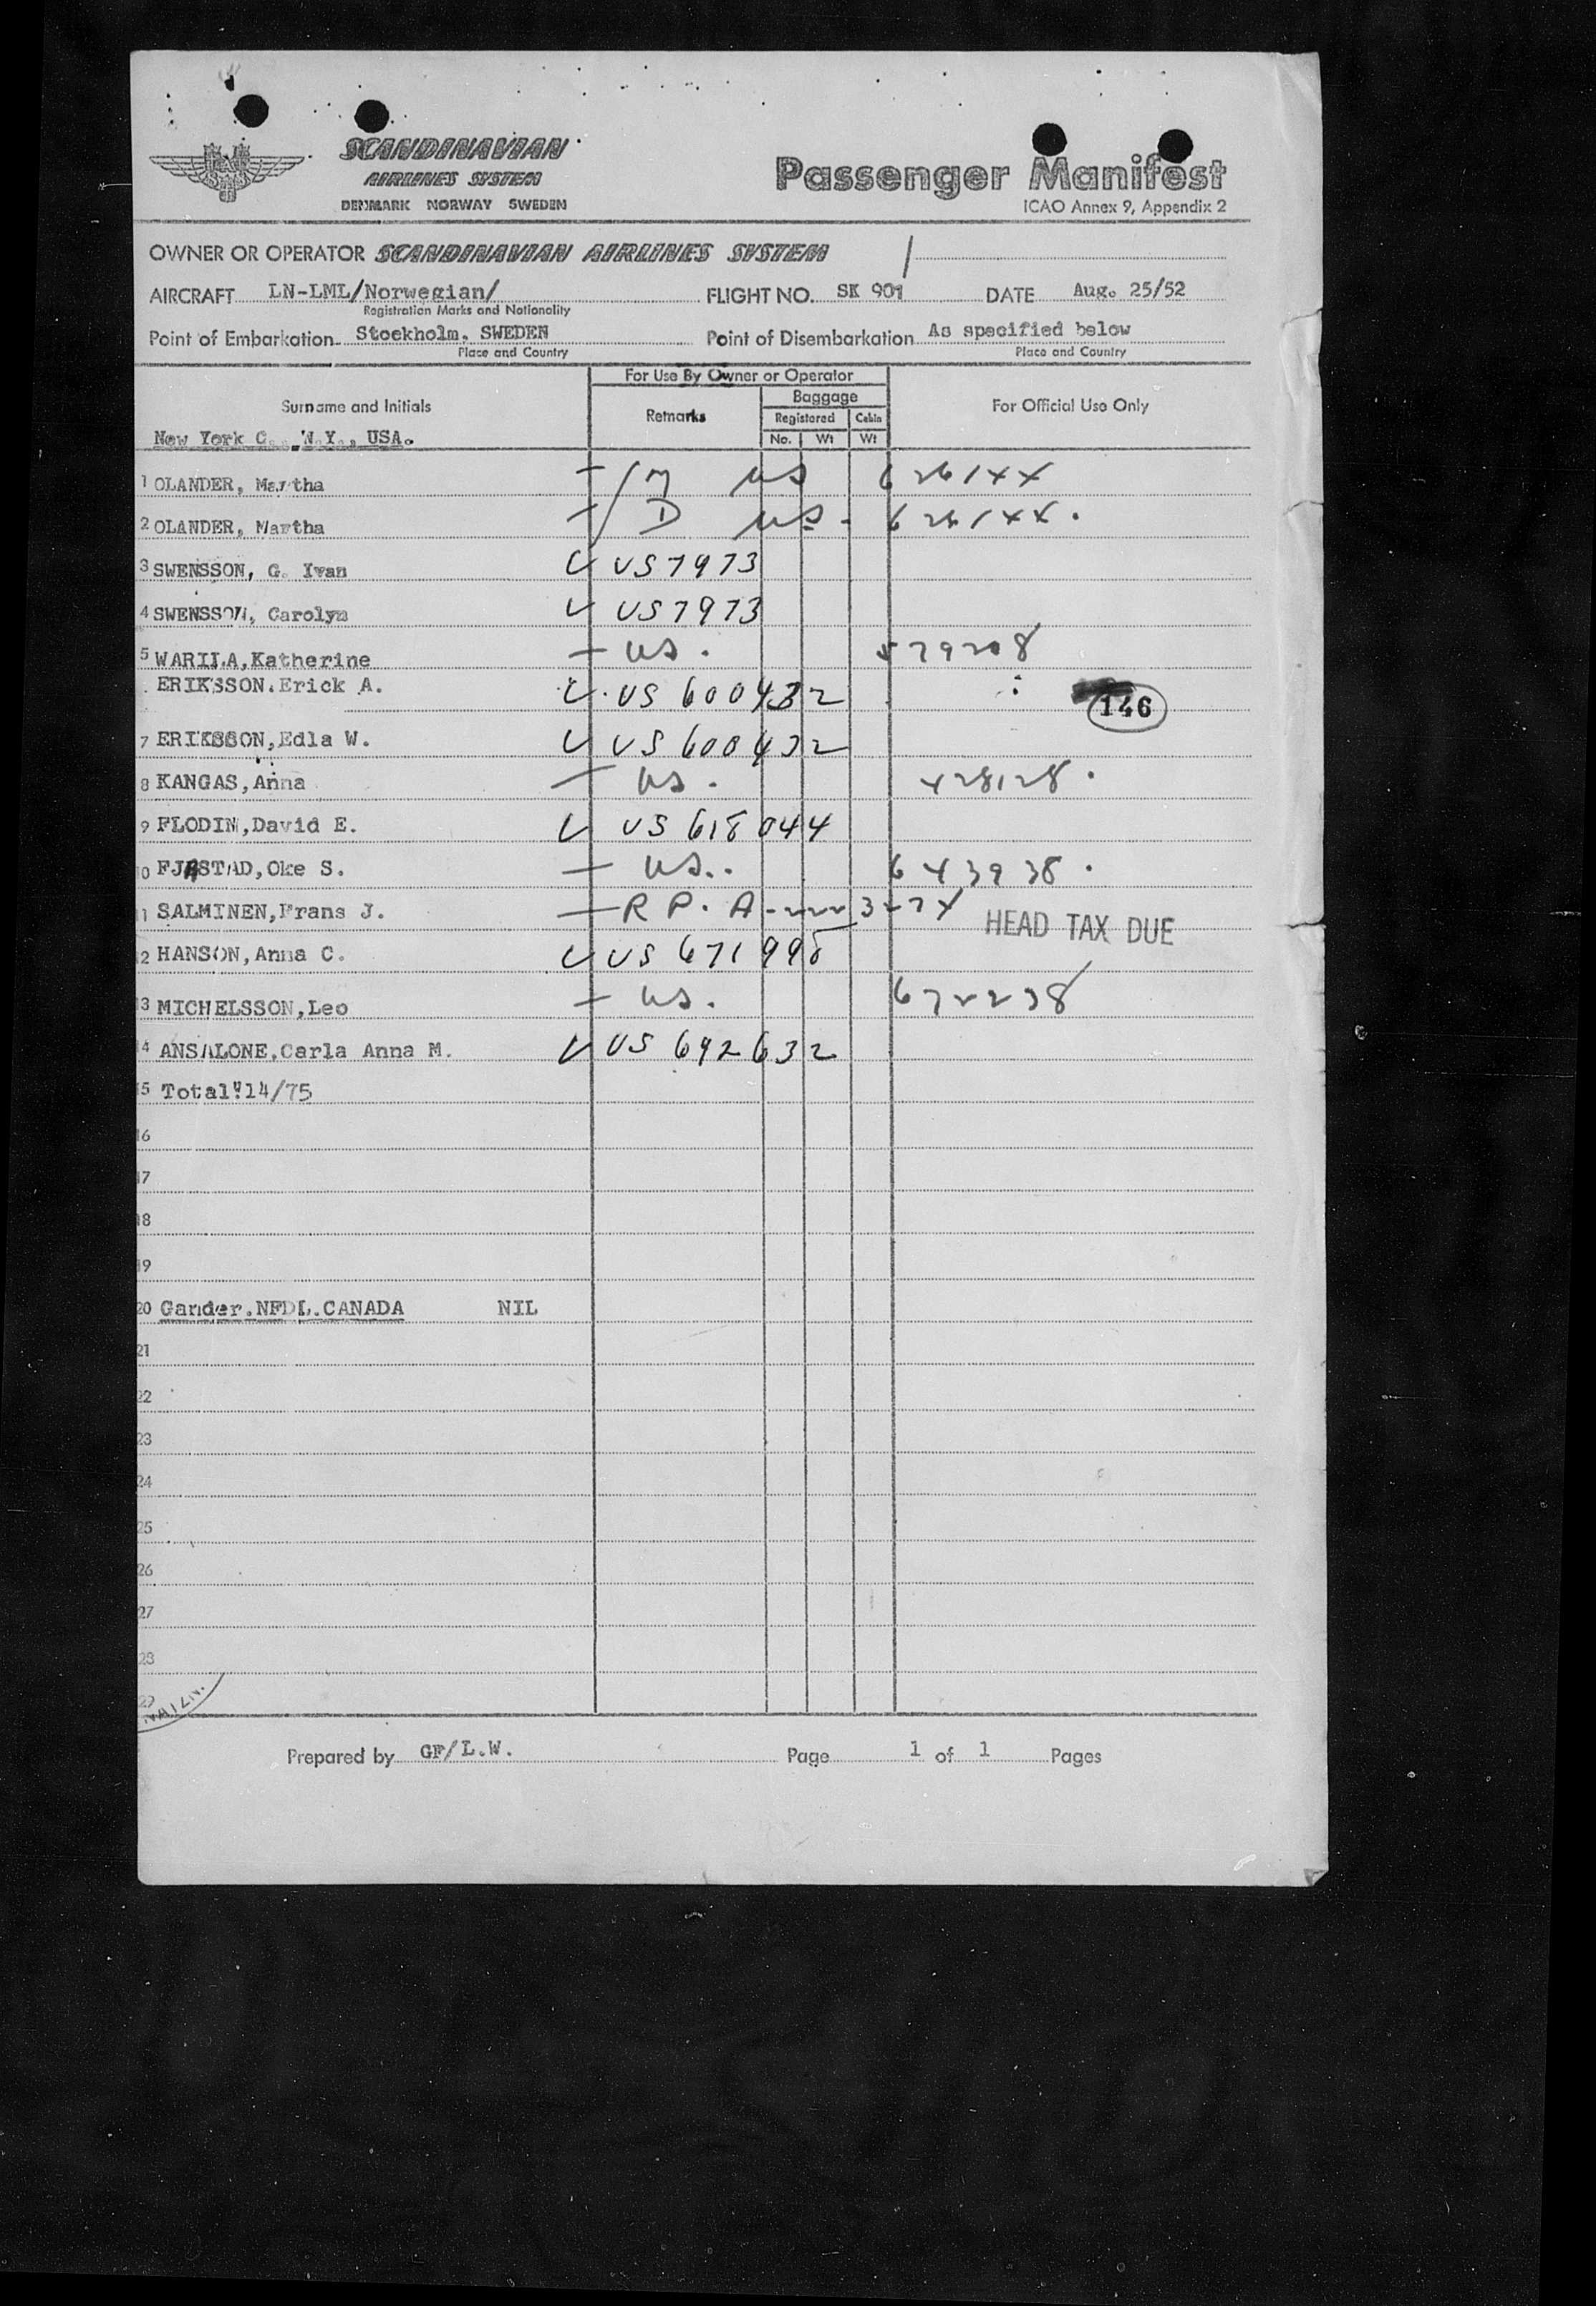 SCANDINAVIAN
AIRLINES SYSTEM
DENMARK NORWAY SWEDEN
Passenger Manifest
ICAO Annex 9, Appendix 2
OWNER OR OPERATOR SCANDINAVIAN AIRLINES SYSTEM
AIRCRAFT LN-LML/Norwegian/ FLIGHT NO. SK 901 DATE Aug. 25/52
Registration Marks and Nationality
Point of Embarkation Stockholm, SWEDEN Point of Disembarkation As specified below
Place and Country Place and Country
For Use By Owner or Operator
Surname and Initials Remarks Baggage For Official Use Only
Registered Cabin
New York C., N.Y., USA. No. Wt Wt
1 OLANDER, Martha M US
2 OLANDER, Martha D US
3 SWENSSON, G. Ivan US 7973
4 SWENSSON, Carolyn US 7973
5 WARILA,Katherine US. 579208
ERIKSSON.Erick A. US 600432 146
7 ERIKSSON,Edla W. US 600432
8 KANGAS,Anna US. 428128.
9 FLODIN,David E. US 618044
10 FJASTAD,Oke S. US.. 643938.
11 SALMINEN,Frans J. R P. HEAD TAX DUE
12 HANSON,Anna C. US 671998
13 MICHELSSON,Leo US. 672238
14 ANSALONE,Carla Anna M. US 692632
15 Total:14/75
16
17
18
19
20 Gander.NFDL.CANADA NIL
21
22
23
24
25
26
27
28
29
Prepared by GF/L.W. Page 1 of 1 Pages